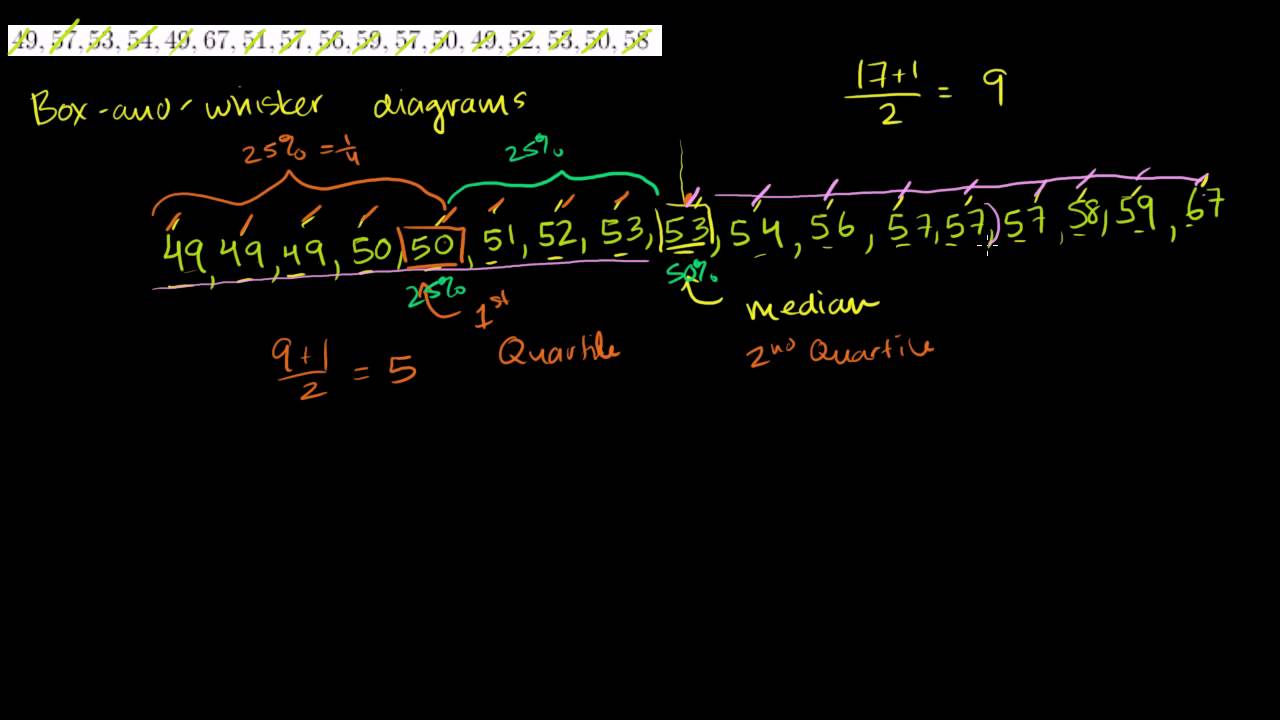 49, 57, 53, 54, 49, 67, 51, 57, 56, 59, 57, 50, 49, 52, 53, 50, 58
Box-and-whisker diagrams
17+1
2
= 9
25% = 1/4
25%
49, 49, 49, 50, 50, 51, 52, 53, 53, 54, 56, 57, 57, 57, 58, 59, 67
25%
50%
1st
Quartile
median
2nd Quartile
9+1
2
= 5